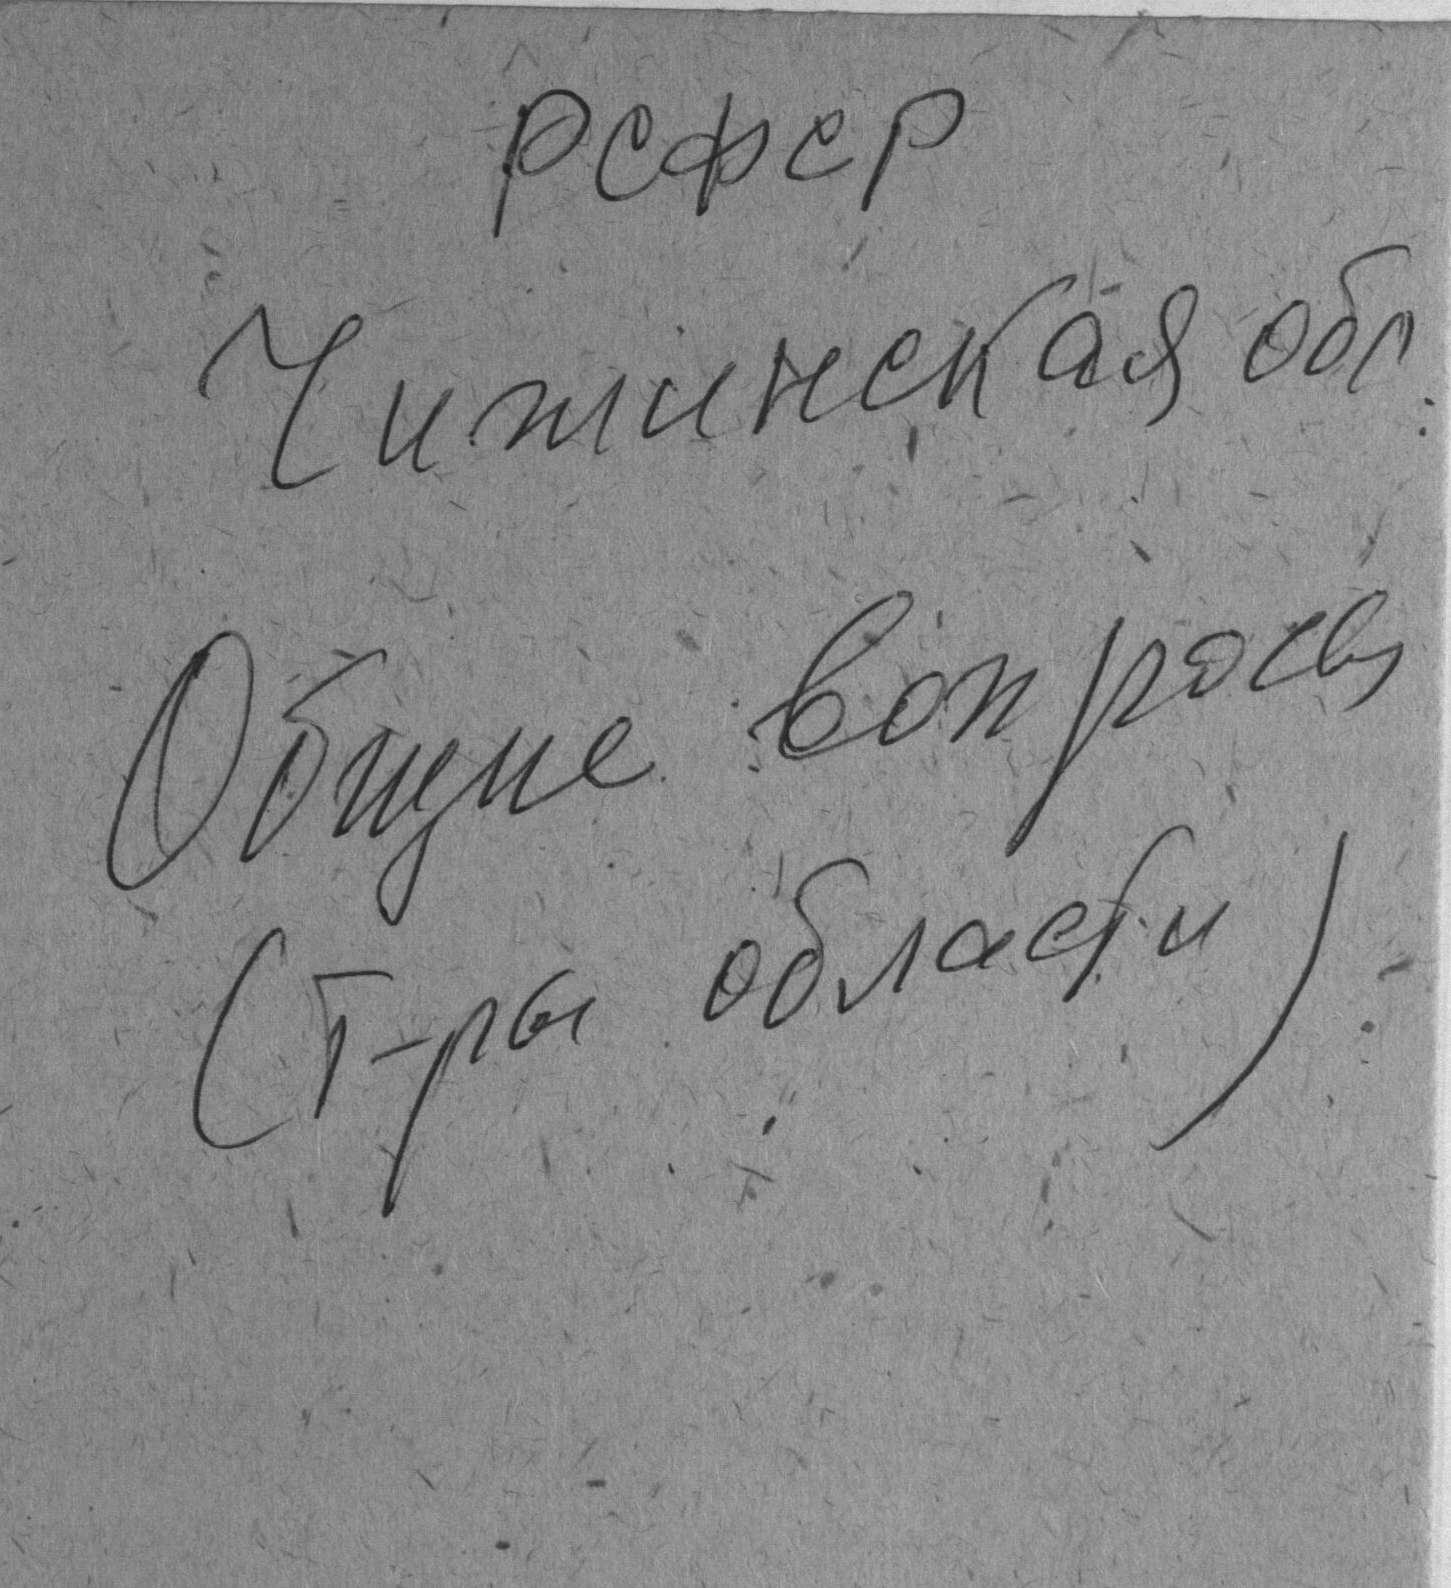 РСФСР
Читинская обл.
Общие вопросы
(т-ры области)